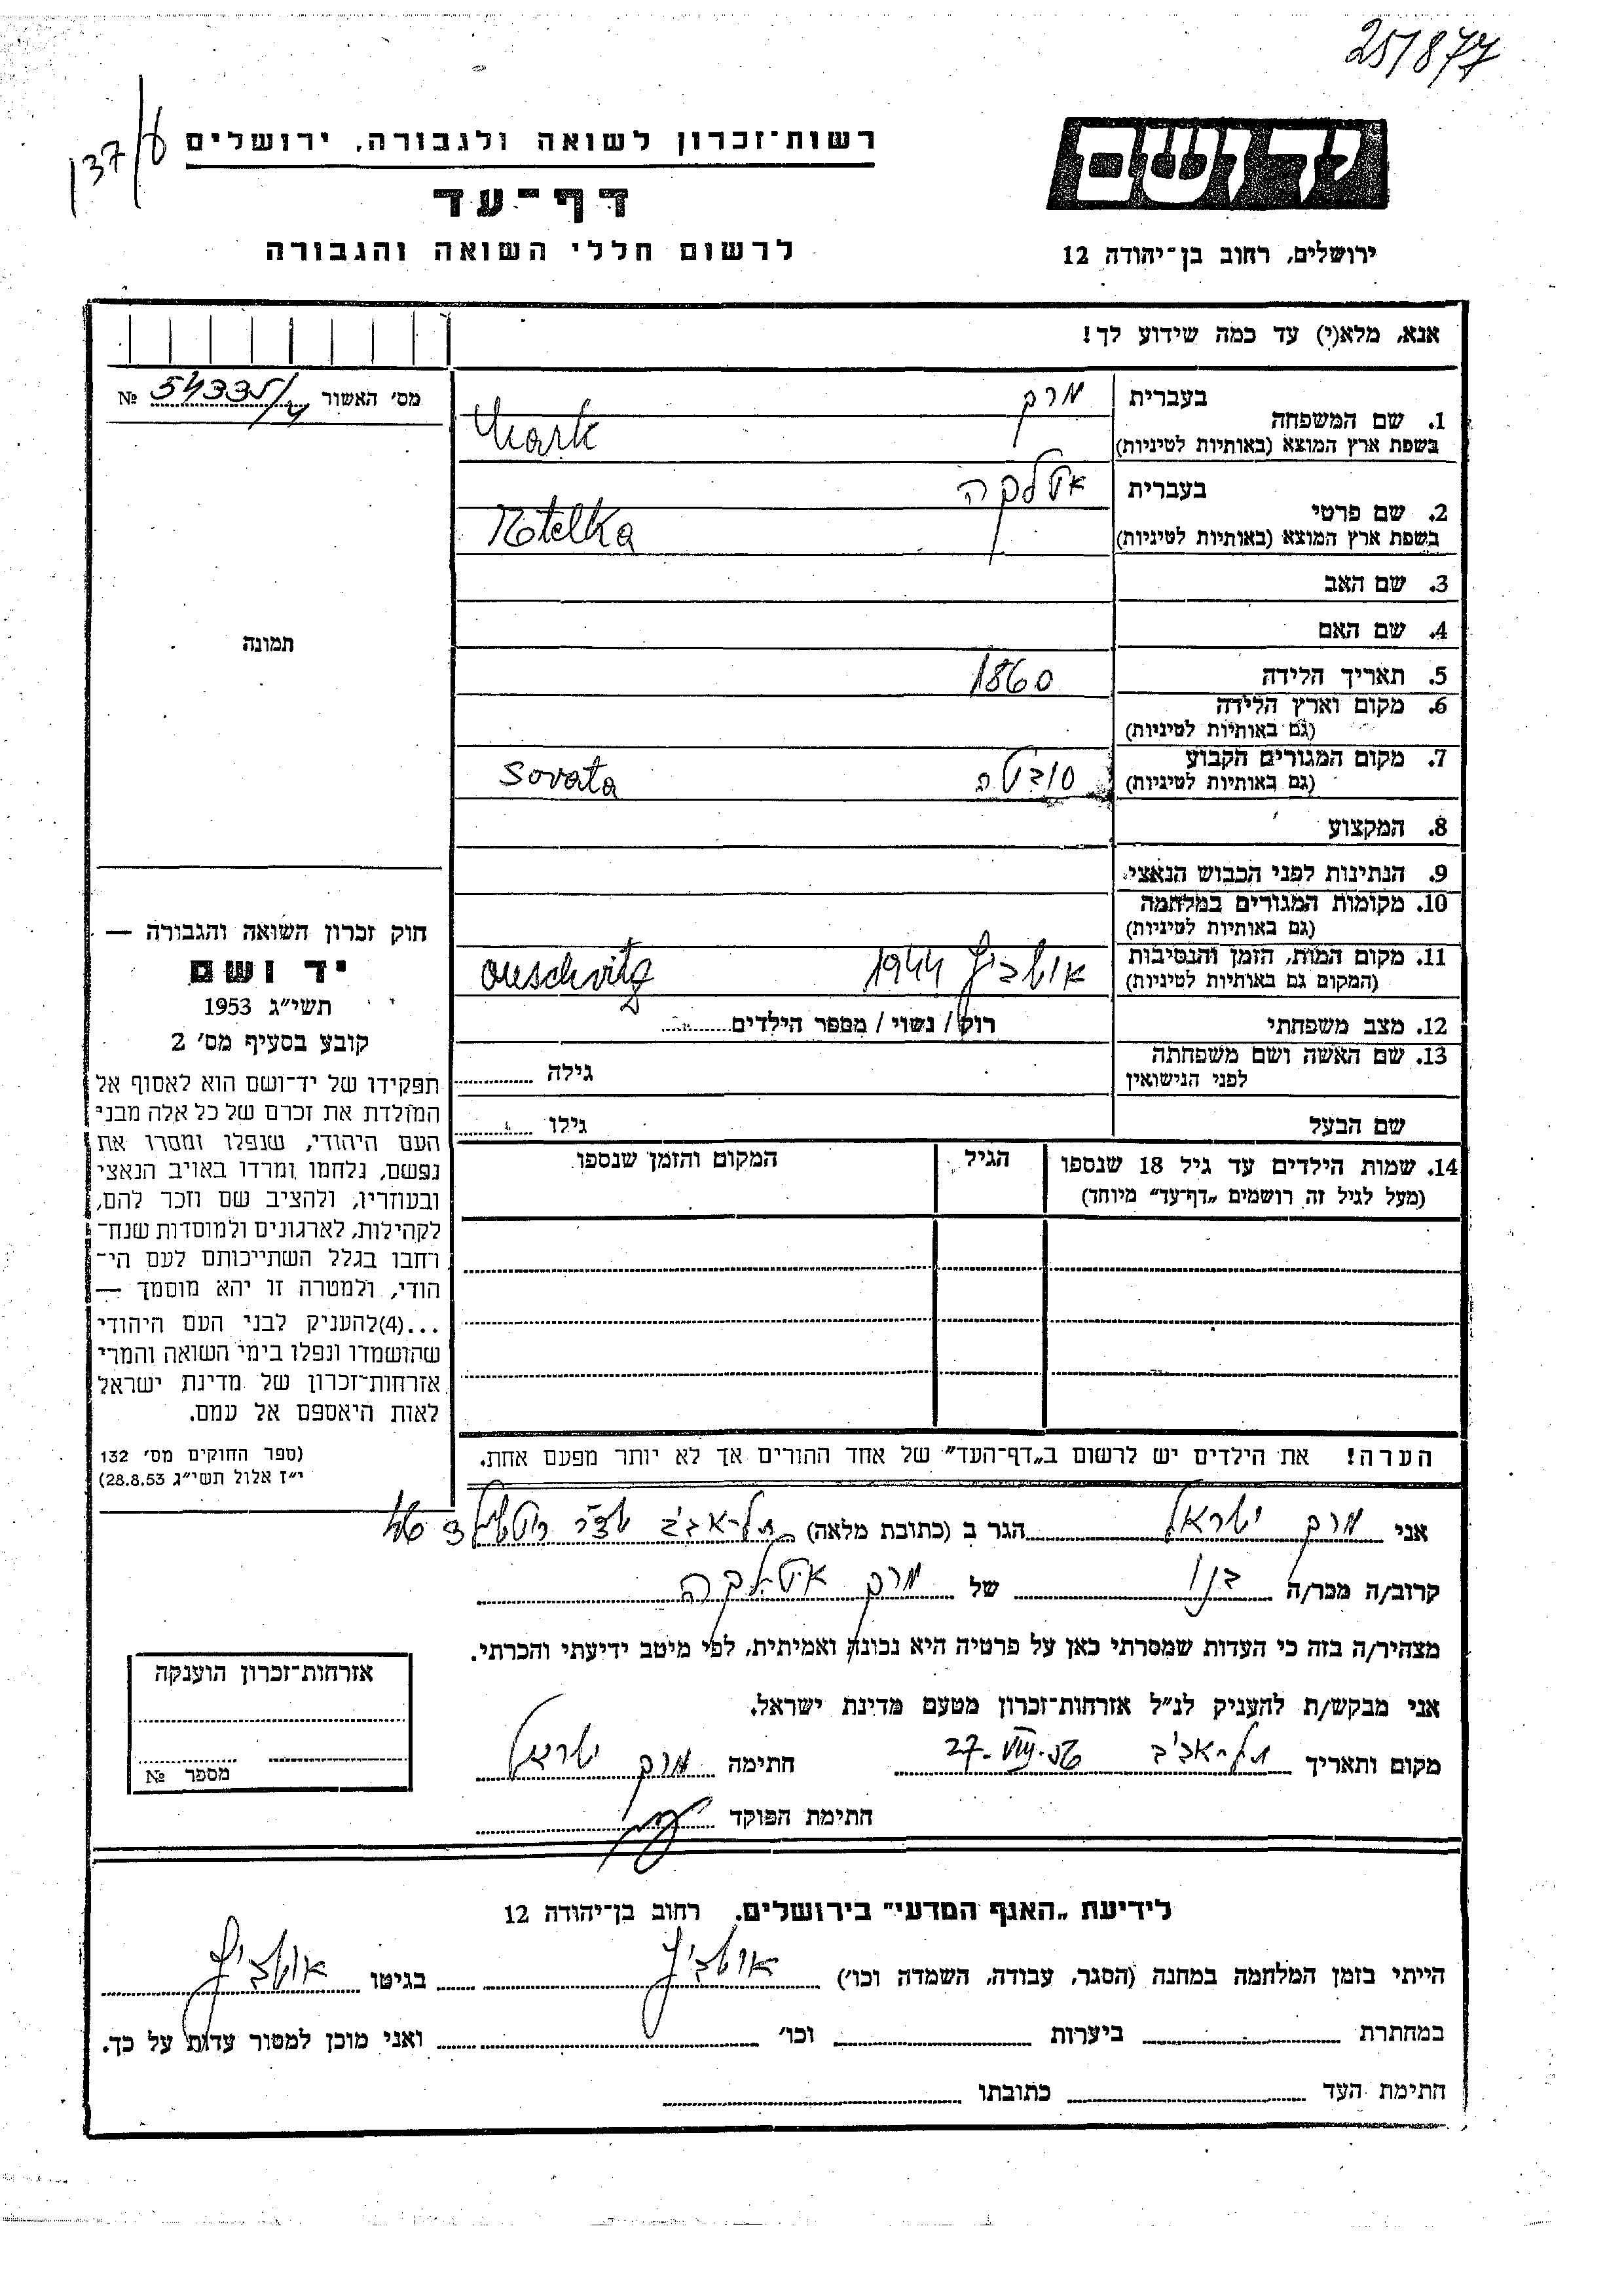 25/877
137/6
רשות־זכרון לשואה ולגבורה, ירושלים
דף־עד
לרשום חללי השואה והגבורה
ידושם
ירושלים, רחוב בן־יהודה 12
אנא, מלא(י) עד כמה שידוע לך!
מס׳ האשור № 54335/4
1. שם המשפחה בעברית מרק
בשפת ארץ המוצא (באותיות לטיניות) Mark
2. שם פרטי בעברית אטלקה
בשפת ארץ המוצא (באותיות לטיניות) Etelka
3. שם האב
4. שם האם
5. תאריך הלידה 1860
6. מקום וארץ הלידה
(גם באותיות לטיניות)
7. מקום המגורים הקבוע סובטה Sovata
(גם באותיות לטיניות)
8. המקצוע
9. הנתינות לפני הכבוש הנאצי
10. מקומות המגורים במלחמה
(גם באותיות לטיניות)
11. מקום המות, הזמן והנסיבות אושביץ 1944 Auschvitz
(המקום גם באותיות לטיניות)
12. מצב משפחתי רווק / נשוי / מספר הילדים
13. שם האשה ושם משפחתה
לפני הנישואין גילה
שם הבעל גילו
14. שמות הילדים עד גיל 18 שנספו הגיל המקום והזמן שנספו
(מעל לגיל זה רושמים „דף־עד״ מיוחד)
תמונה
חוק זכרון השואה והגבורה —
יד ושם
תשי״ג 1953
קובע בסעיף מס׳ 2
תפקידו של יד־ושם הוא לאסוף אל
המולדת את זכרם של כל אלה מבני
העם היהודי, שנפלו ומסרו את
נפשם, נלחמו ומרדו באויב הנאצי
ובעוזריו, ולהציב שם וזכר להם,
לקהילות, לארגונים ולמוסדות שנח־
רחבו בגלל השתייכותם לעם הי־
הודי, ולמטרה זו יהא מוסמך —
...(4)להעניק לבני העם היהודי
שהושמדו ונפלו בימי השואה והמרי
אזרחות־זכרון של מדינת ישראל
לאות היאספם אל עמם.
(ספר החוקים מס׳ 132
י״ז אלול תשי״ג 28.8.53)
הערה! את הילדים יש לרשום ב„דף־העד״ של אחד ההורים אך לא יותר מפעם אחת.
אני מרק ישראל הגר ב (כתובת מלאה) תל־אביב
קרוב/ה מכר/ה בנו של מרק אטלקה
מצהיר/ה בזה כי העדות שמסרתי כאן על פרטיה היא נכונה ואמיתית, לפי מיטב ידיעתי והכרתי.
אני מבקש/ת להעניק לנ״ל אזרחות־זכרון מטעם מדינת ישראל.
מקום ותאריך תל־אביב 27.VIII.56 חתימה מרק ישראל
חתימת הפוקד
אזרחות־זכרון הוענקה
מספר №
לידיעת „האגף המדעי״ בירושלים, רחוב בן־יהודה 12
הייתי בזמן המלחמה במחנה (הסגר, עבודה, השמדה וכו׳) אושביץ בגיטו אושביץ
במחתרת ביערות וכו׳ ואני מוכן למסור עדות על כך.
חתימת העד כתובתו